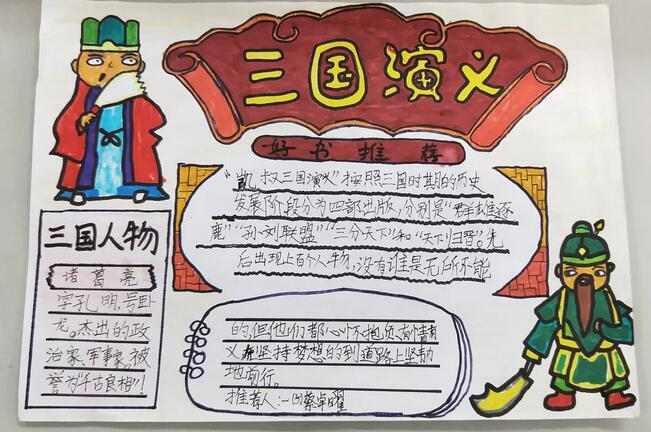 三国演义
好书推荐
"凯叔三国演义"按照三国时期的历史
发展阶段分为四部出版,分别是"群雄逐
鹿""孙刘联盟""三分天下"和"天下归晋"。先
后出现上百个人物,没有谁是无所不能
的,但他们都心怀抱负,有情有
义坚持梦想的到道路上坚韧
地前行。
推荐人:一(1)蔡卓曜
三国人物
诸葛亮
字孔明,号卧
龙。杰出的政
治家、军事家,被
誉为"千古良相"!